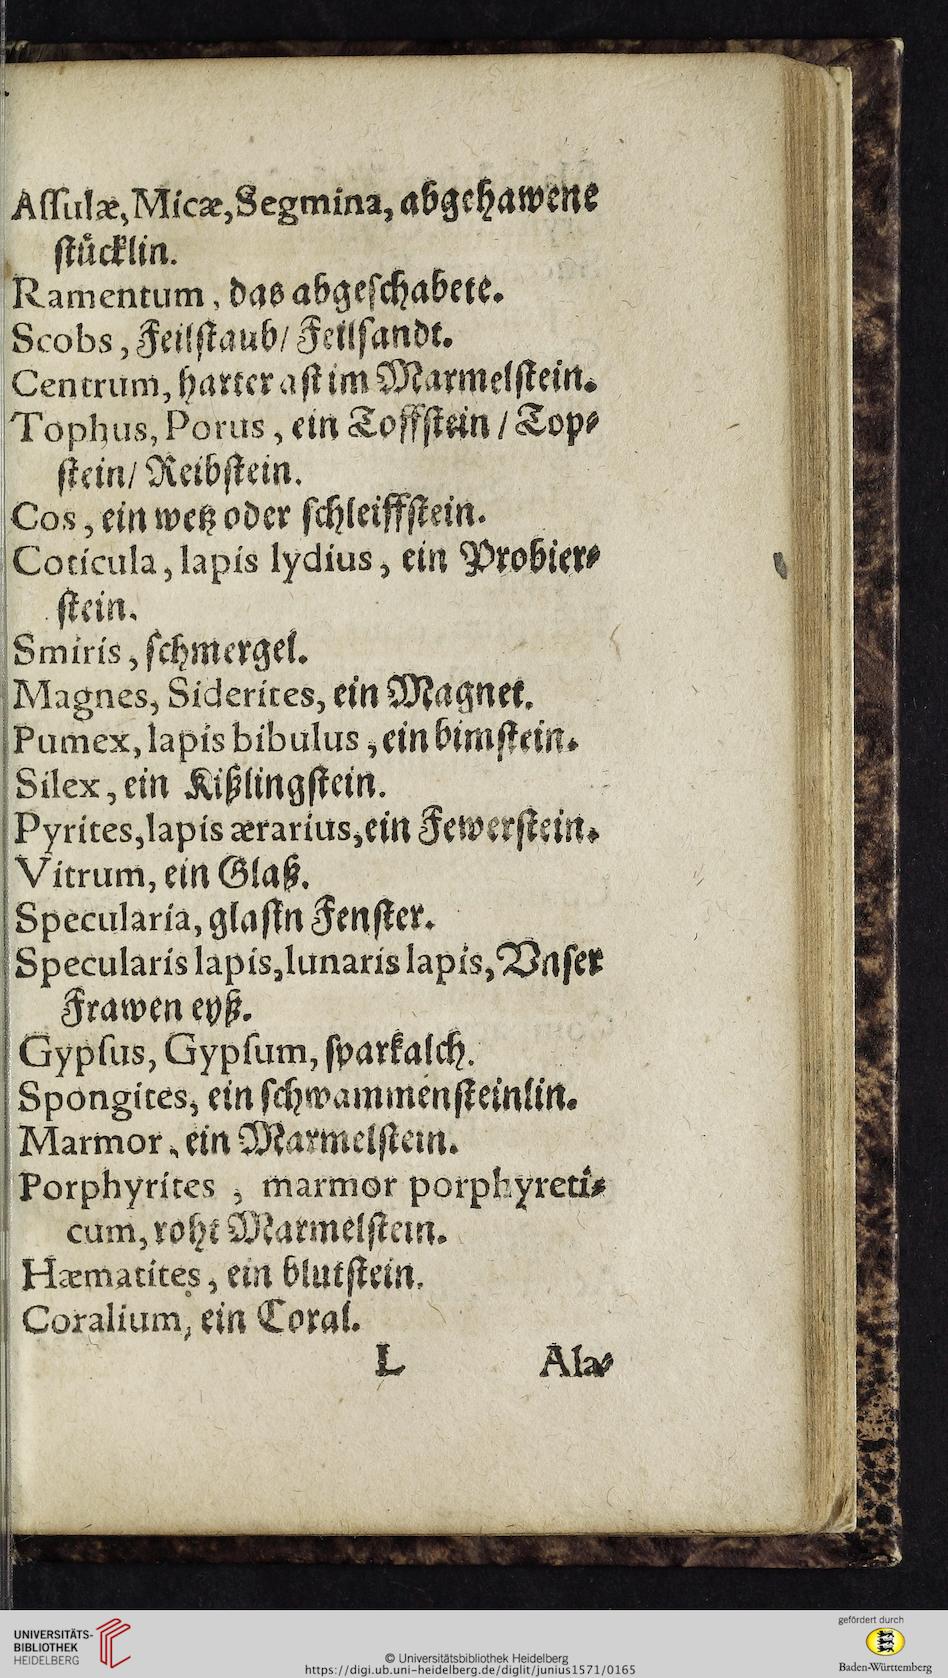 Aſſulæ, Micæ, Segmina, abgehawene
ſtücklin.
Ramentum, das abgeſchabete.
Scobs, Feilſtaub/ Feilſandt.
Centrum, harter aſt im Marmelſtein.
Tophus, Porus, ein Toffſtein / Top⸗
ſtein/ Reibſtein.
Cos, ein wetz oder ſchleiffſtein.
Coticula, lapis lydius, ein Probier⸗
ſtein.
Smiris, ſchmergel.
Magnes, Siderites, ein Magnet.
Pumex, lapis bibulus, ein bimſtein.
Silex, ein Kißlingſtein.
Pyrites, lapis ærarius, ein Fewerſtein.
Vitrum, ein Glaß.
Specularia, glaſin Fenſter.
Specularis lapis, lunaris lapis, Vnſer
Frawen eyß.
Gypſus, Gypſum, ſparkalch.
Spongites, ein ſchwammenſteinlin.
Marmor, ein Marmelſtein.
Porphyrites, marmor porphyreti⸗
cum, roht Marmelſtein.
Hæmatites, ein blutſtein.
Coralium, ein Coral.
L Ala⸗
UNIVERSITÄTS-
BIBLIOTHEK
HEIDELBERG
© Universitätsbibliothek Heidelberg
https://digi.ub.uni-heidelberg.de/diglit/junius1571/0165
gefördert durch
Baden-Württemberg